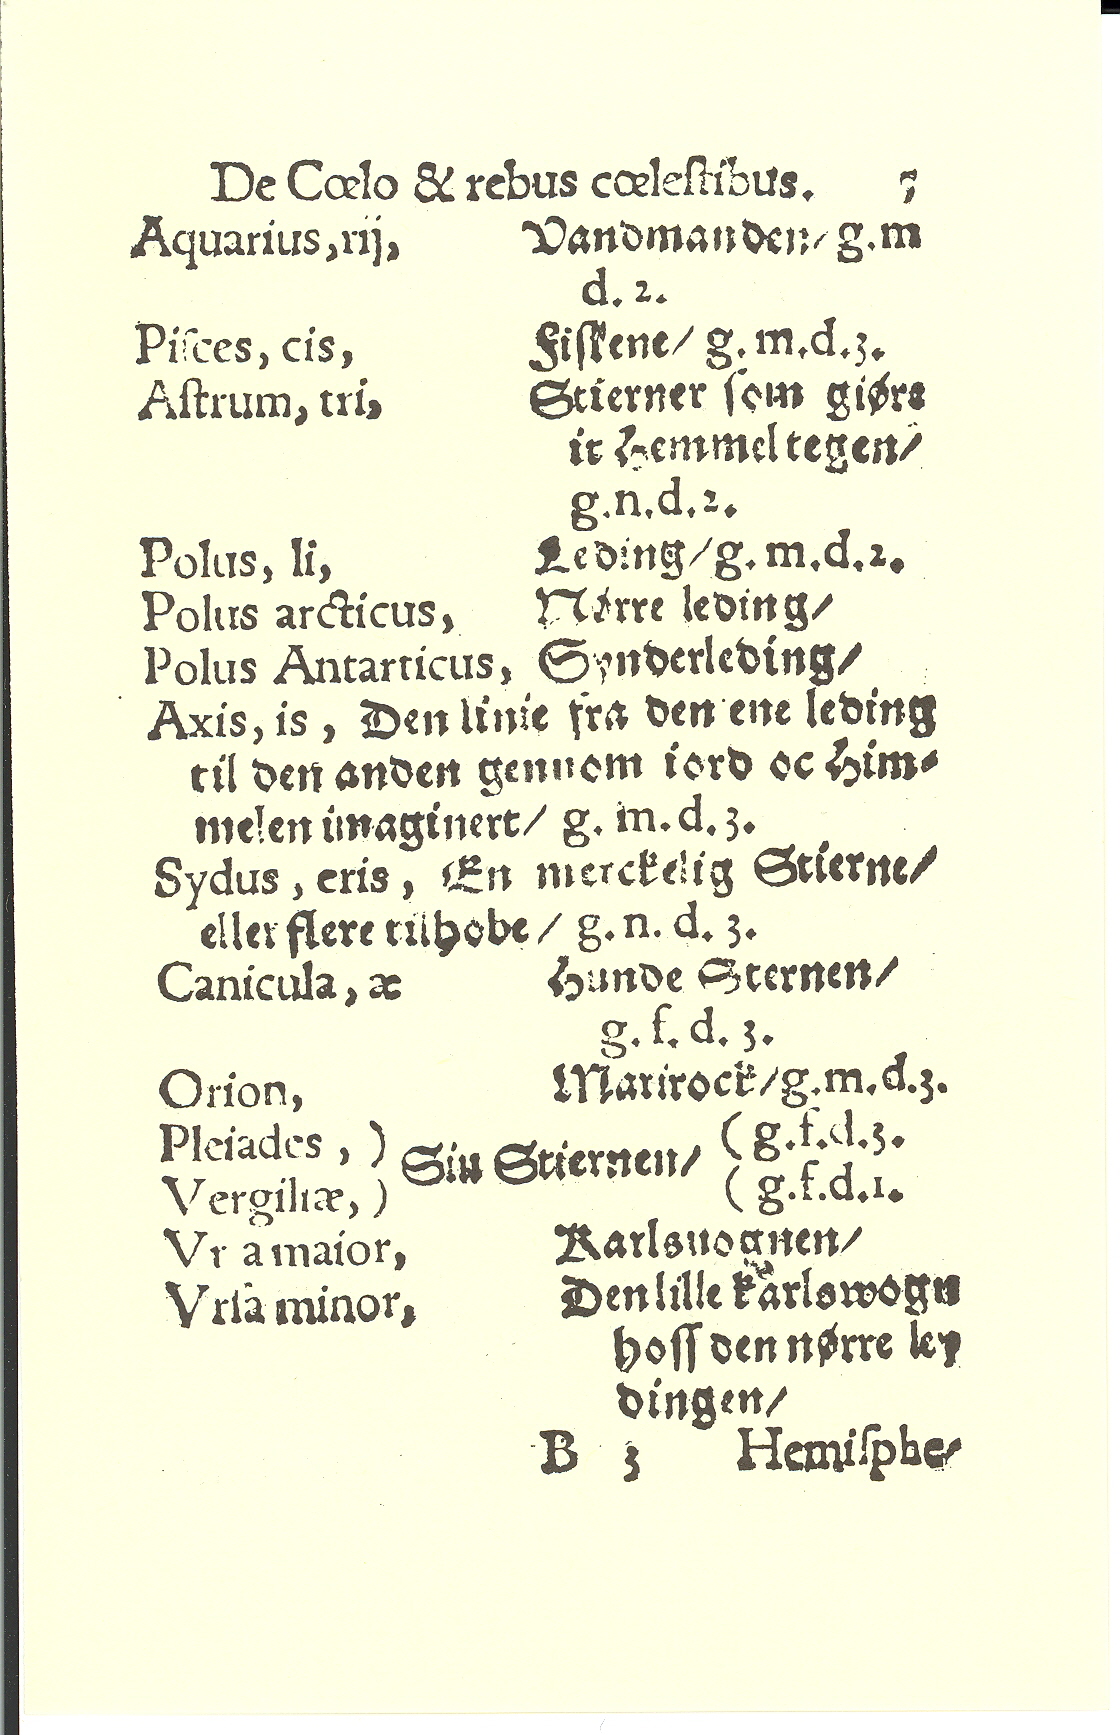 De Cœlo & rebus cœleſtibus. 5
Aquarius,rij, Vandmanden/ g.m
d. 2.
Piſces, cis, Fiſkene/ g.m.d.3.
Aſtrum, tri, Stierner ſom giøre
it Hemmel tegen/
g.n.d.2.
Polus, li, Leding/g.m.d.2.
Polus arcticus, Nørre leding/
Polus Antarticus, Synderleding/
Axis, is, Den linie fra den ene leding
til den anden gennom iord oc Him-
melen imaginert/ g. m.d.3.
Sydus, eris, En merckelig Stierne/
eller flere tilhobe/ g.n.d.3.
Canicula, æ Hunde Sternen/
g.f.d.3.
Orion, Marirock/g.m.d.3.
Pleiades, ) (g.f.d.3.
Siu Stiernen/
Vergiliæ, ) (g.f.d.1.
Vr a maior, Karlsuognen/
Vrſa minor, Den lille karlswogn
hoſſ den nørre ley
dingen/
B 3 Hemiſphe/